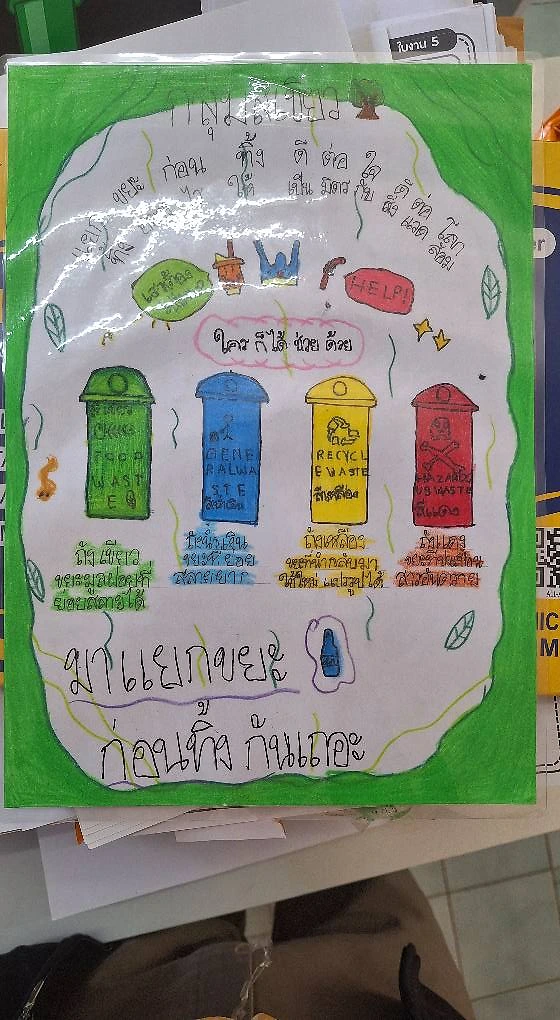 ใบงาน 5
แยก ขยะ ก่อน ทิ้ง ดี ต่อ ใจ ดี ต่อ โลก
ทิ้ง ไว้ ให้ เป็น มิตร กับ สิ่ง แวด ล้อม
HELP!
ใคร ก็ได้ ช่วย ด้วย
FOOD
WAST
E
GENE
RALWA
STE
สีน้ำเงิน
RECYCL
EWASTE
สีเหลือง
HAZARDO
USWASTE
สีแดง
ถังเขียว
ขยะมูลฝอยที่
ย่อยสลายได้
ถังน้ำเงิน
ขยะที่ย่อย
สลายยาก
ถังเหลือง
ขยะที่นำกลับมา
ใช้ใหม่ แปรรูปได้
ถังแดง
ขยะที่ปนเปื้อน
สารอันตราย
มาแยกขยะ
ก่อนทิ้ง กันเถอะ